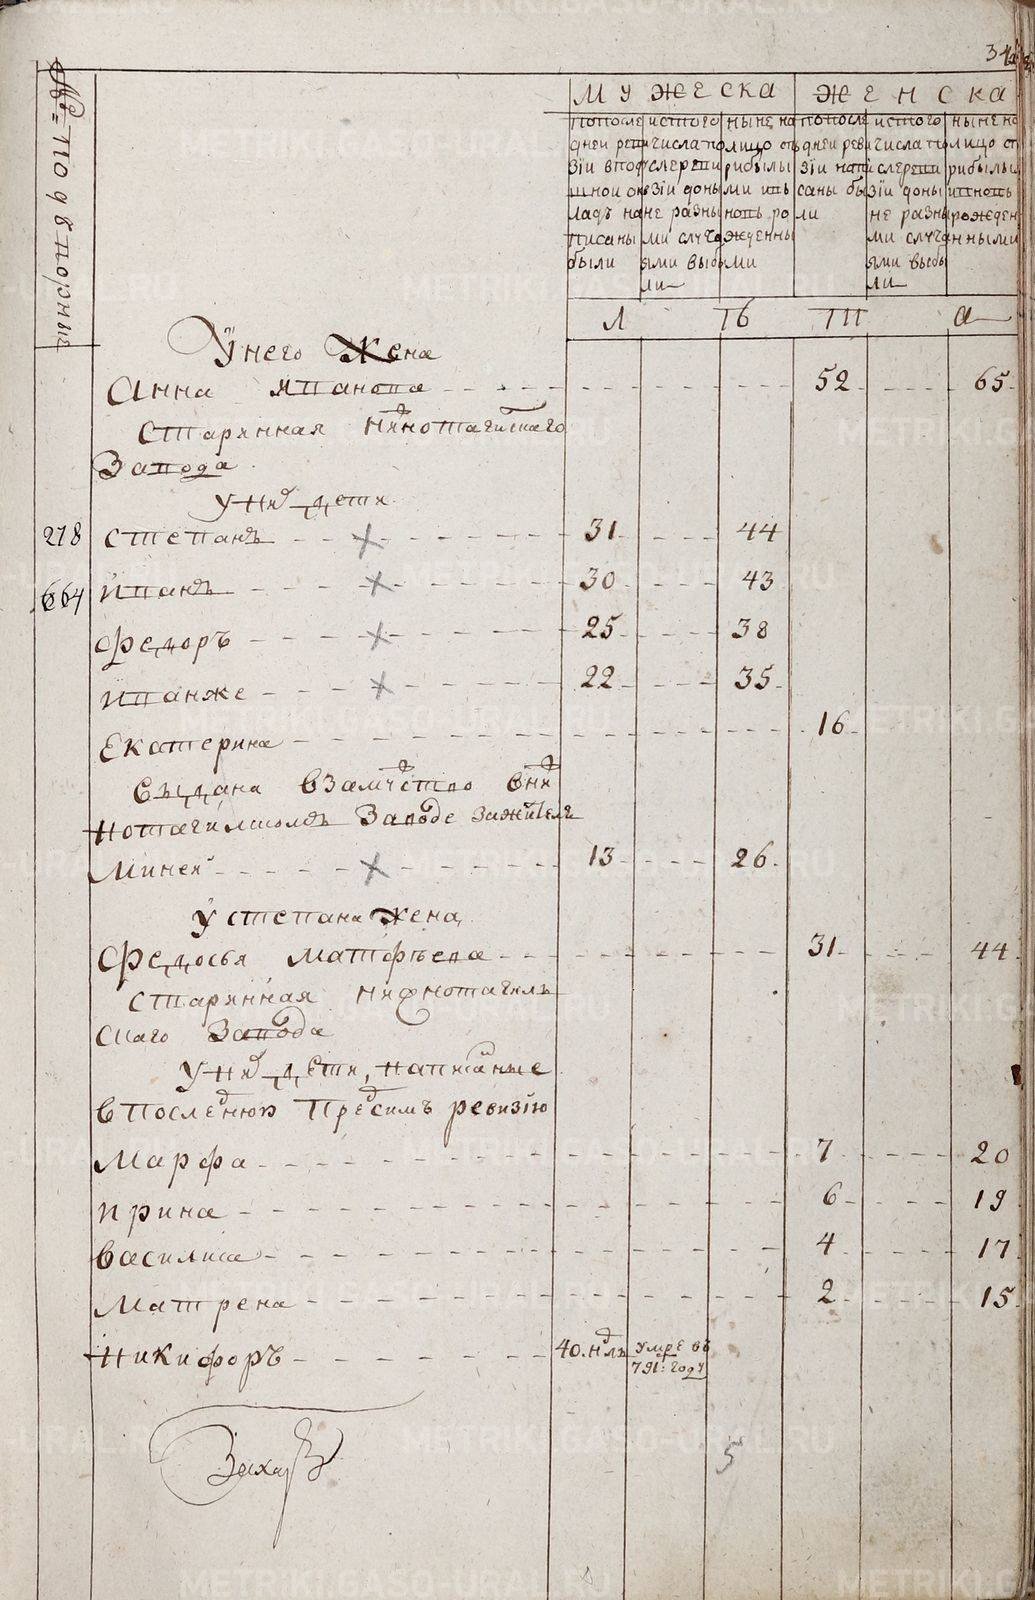 34
№ 110 дворныя
МУЖЕСКА
ЖЕНСКА
попосле
дней реви
зiи впо
шной ок
ладъ на
писаны
были
истого
числа по
слереви
зiи доны
не разны
ми случа
ями выбы
ли
ныне на
лицо съ
рибылы
ми ивь
новь ро
жденны
ми
попосле
дней реви
зiи напи
саны бы
ли
истого
числа по
слереви
зiи доны
не разны
ми случа
ями выбы
ли
ныне на
лицо съ
рибылы
ивновь
рожден
ными
Л ѣ т а
Унего жена
Анна Иванова 52 65
старинная нижнотагилскаго
Завода
Уних дети
278 Степанъ 31 44
664 Иванъ 30 43
Федоръ 25 38
Иванже 22 35
Екатерина 16
выдана взамужство вниж
нотагилскомъ заводе зажителя
Миней 13 26
У степана жена
Федосья Матфѣева 31 44
старинная нижнотагиль
скаго Завода
Уних дети, написаные
впоследнюю пред симъ ревизiю
Марфа 7 20
Ирина 6 19
Василиса 4 17
Матрена 2 15
Никифоръ 40. недль умре въ
791: году
Захар
5